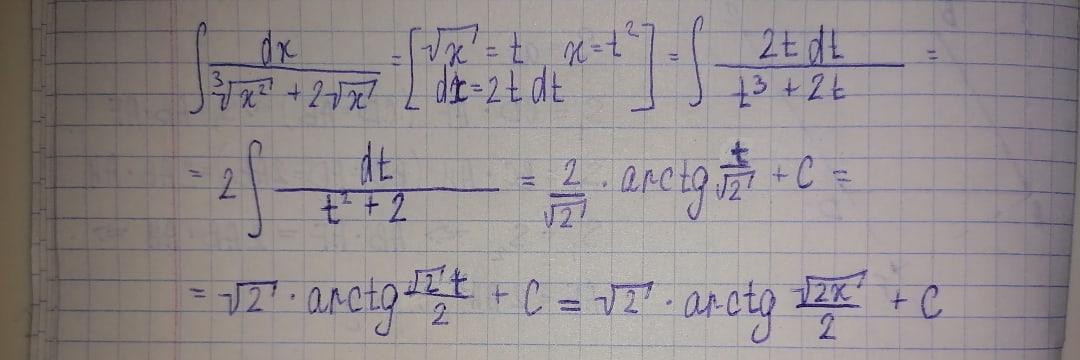 ∫ dx / (∛(x²) + 2√x) = [√x = t x = t² dx = 2t dt] = ∫ 2t dt / (t³ + 2t) =
= 2 ∫ dt / (t² + 2) = 2/√2 · arctg t/√2 + C =
= √2 · arctg (√2 t)/2 + C = √2 · arctg √(2x)/2 + C